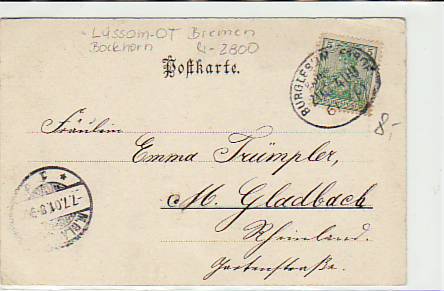 Lüssom-OT Bremen
Bockhorn 4-2800
Postkarte.
BURGLESUM
8,-
Fräulein
Emma Trümpler,
M. Gladbach
Rheinland.
Gartenstraße.
7.7.01.8-9
M.GLA